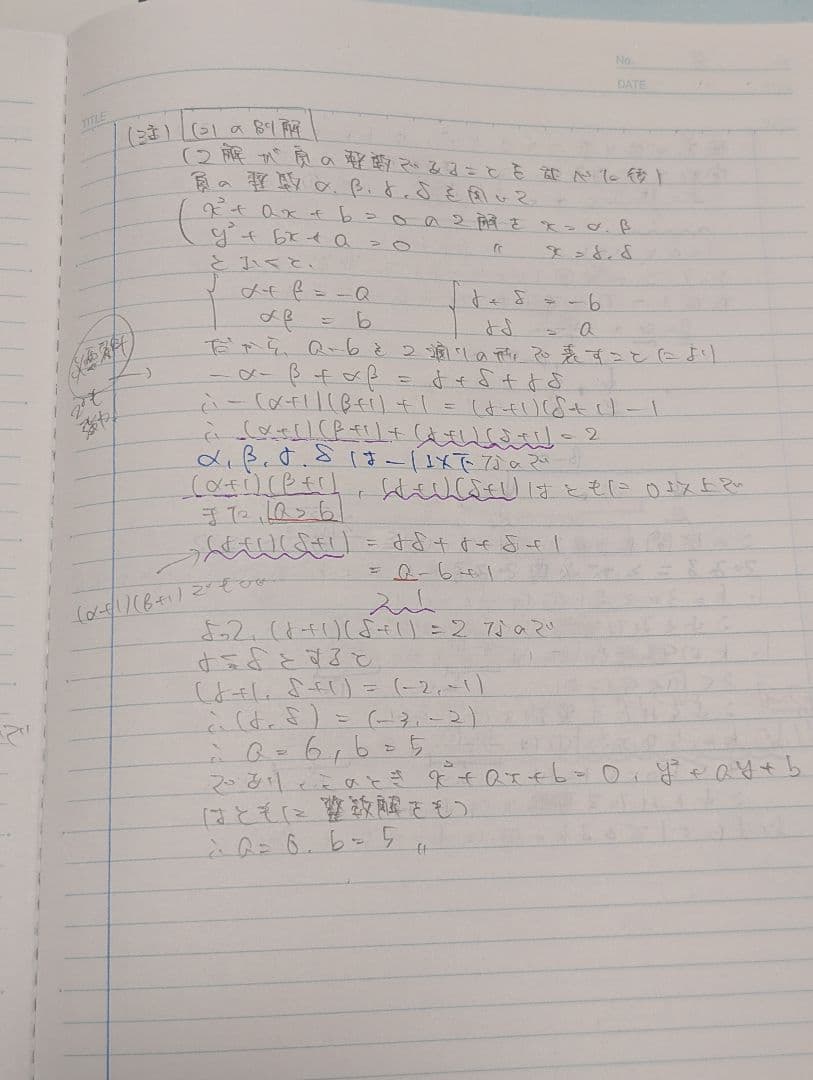 No.
DATE
TITLE
(注) (2)の別解
(2解が負の整数であることを 後)
負の整数α, β, γ, δを用いて
x²+ax+b=0の2解をx=α, β
y²+bx+a=0 〃 x=γ, δ
とおくと、
α+β=-a γ+δ=-b
αβ=b γδ=a
だから、a-bを2通りの形で表すことにより
-α-β+αβ=γ+δ+γδ
∴-(α+1)(β+1)+1=(γ+1)(δ+1)-1
∴(α+1)(β+1)+(γ+1)(δ+1)=2
α, β, γ, δは-1以下なので
(α+1)(β+1), (γ+1)(δ+1)はともに0以上で
また, a>b
(γ+1)(δ+1)=γδ+γ+δ+1
=a-b+1
≧1
(α+1)(β+1)でも
よって, (γ+1)(δ+1)=2なので
γ≦δとすると
(γ+1, δ+1)=(-2, -1)
∴(γ, δ)=(-3, -2)
∴a=6, b=5
であり, このときx²+ax+b=0, y²+ay+b
はともに整数解をもつ
∴a=6, b=5 〃